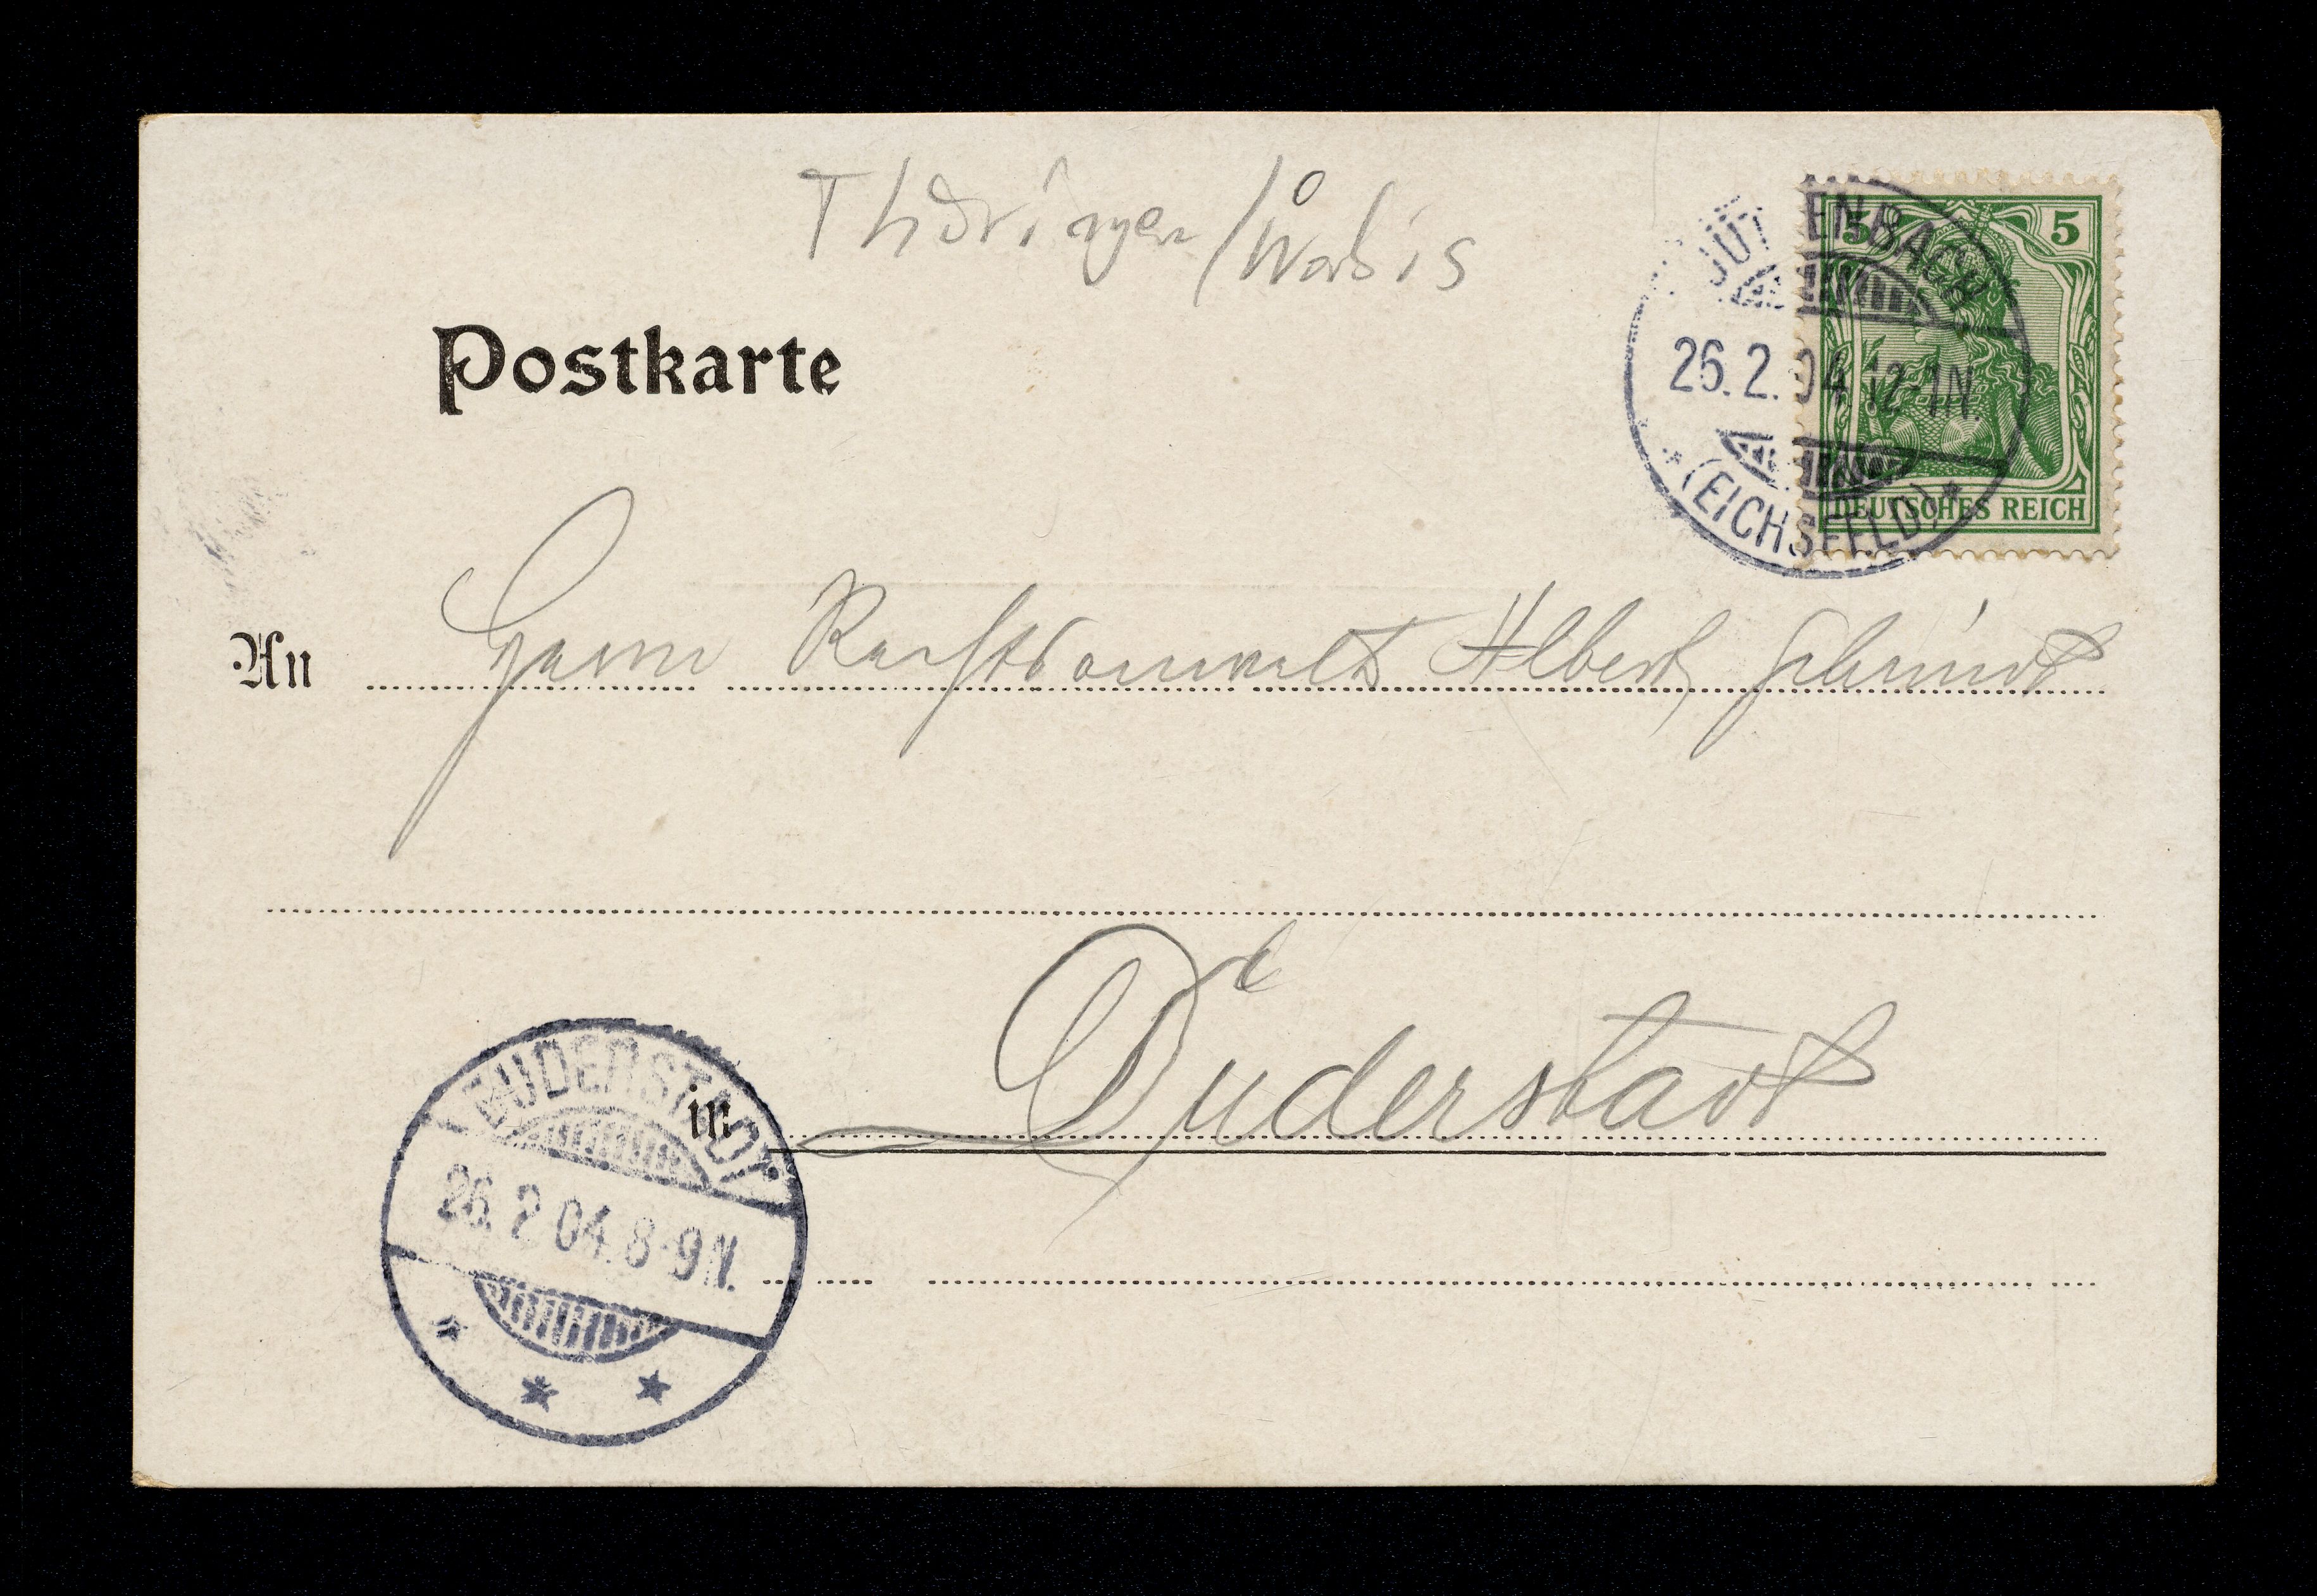 Thüringen/Worbis
Postkarte
JÜTZENBACH
5 5
26.2.04 12-1N.
* (EICHSFELD) *
DEUTSCHES REICH
An Herrn Rechtsanwalt Albert Schmidt
in Duderstadt
DUDERSTADT
26.2.04.8-9N.
* * *